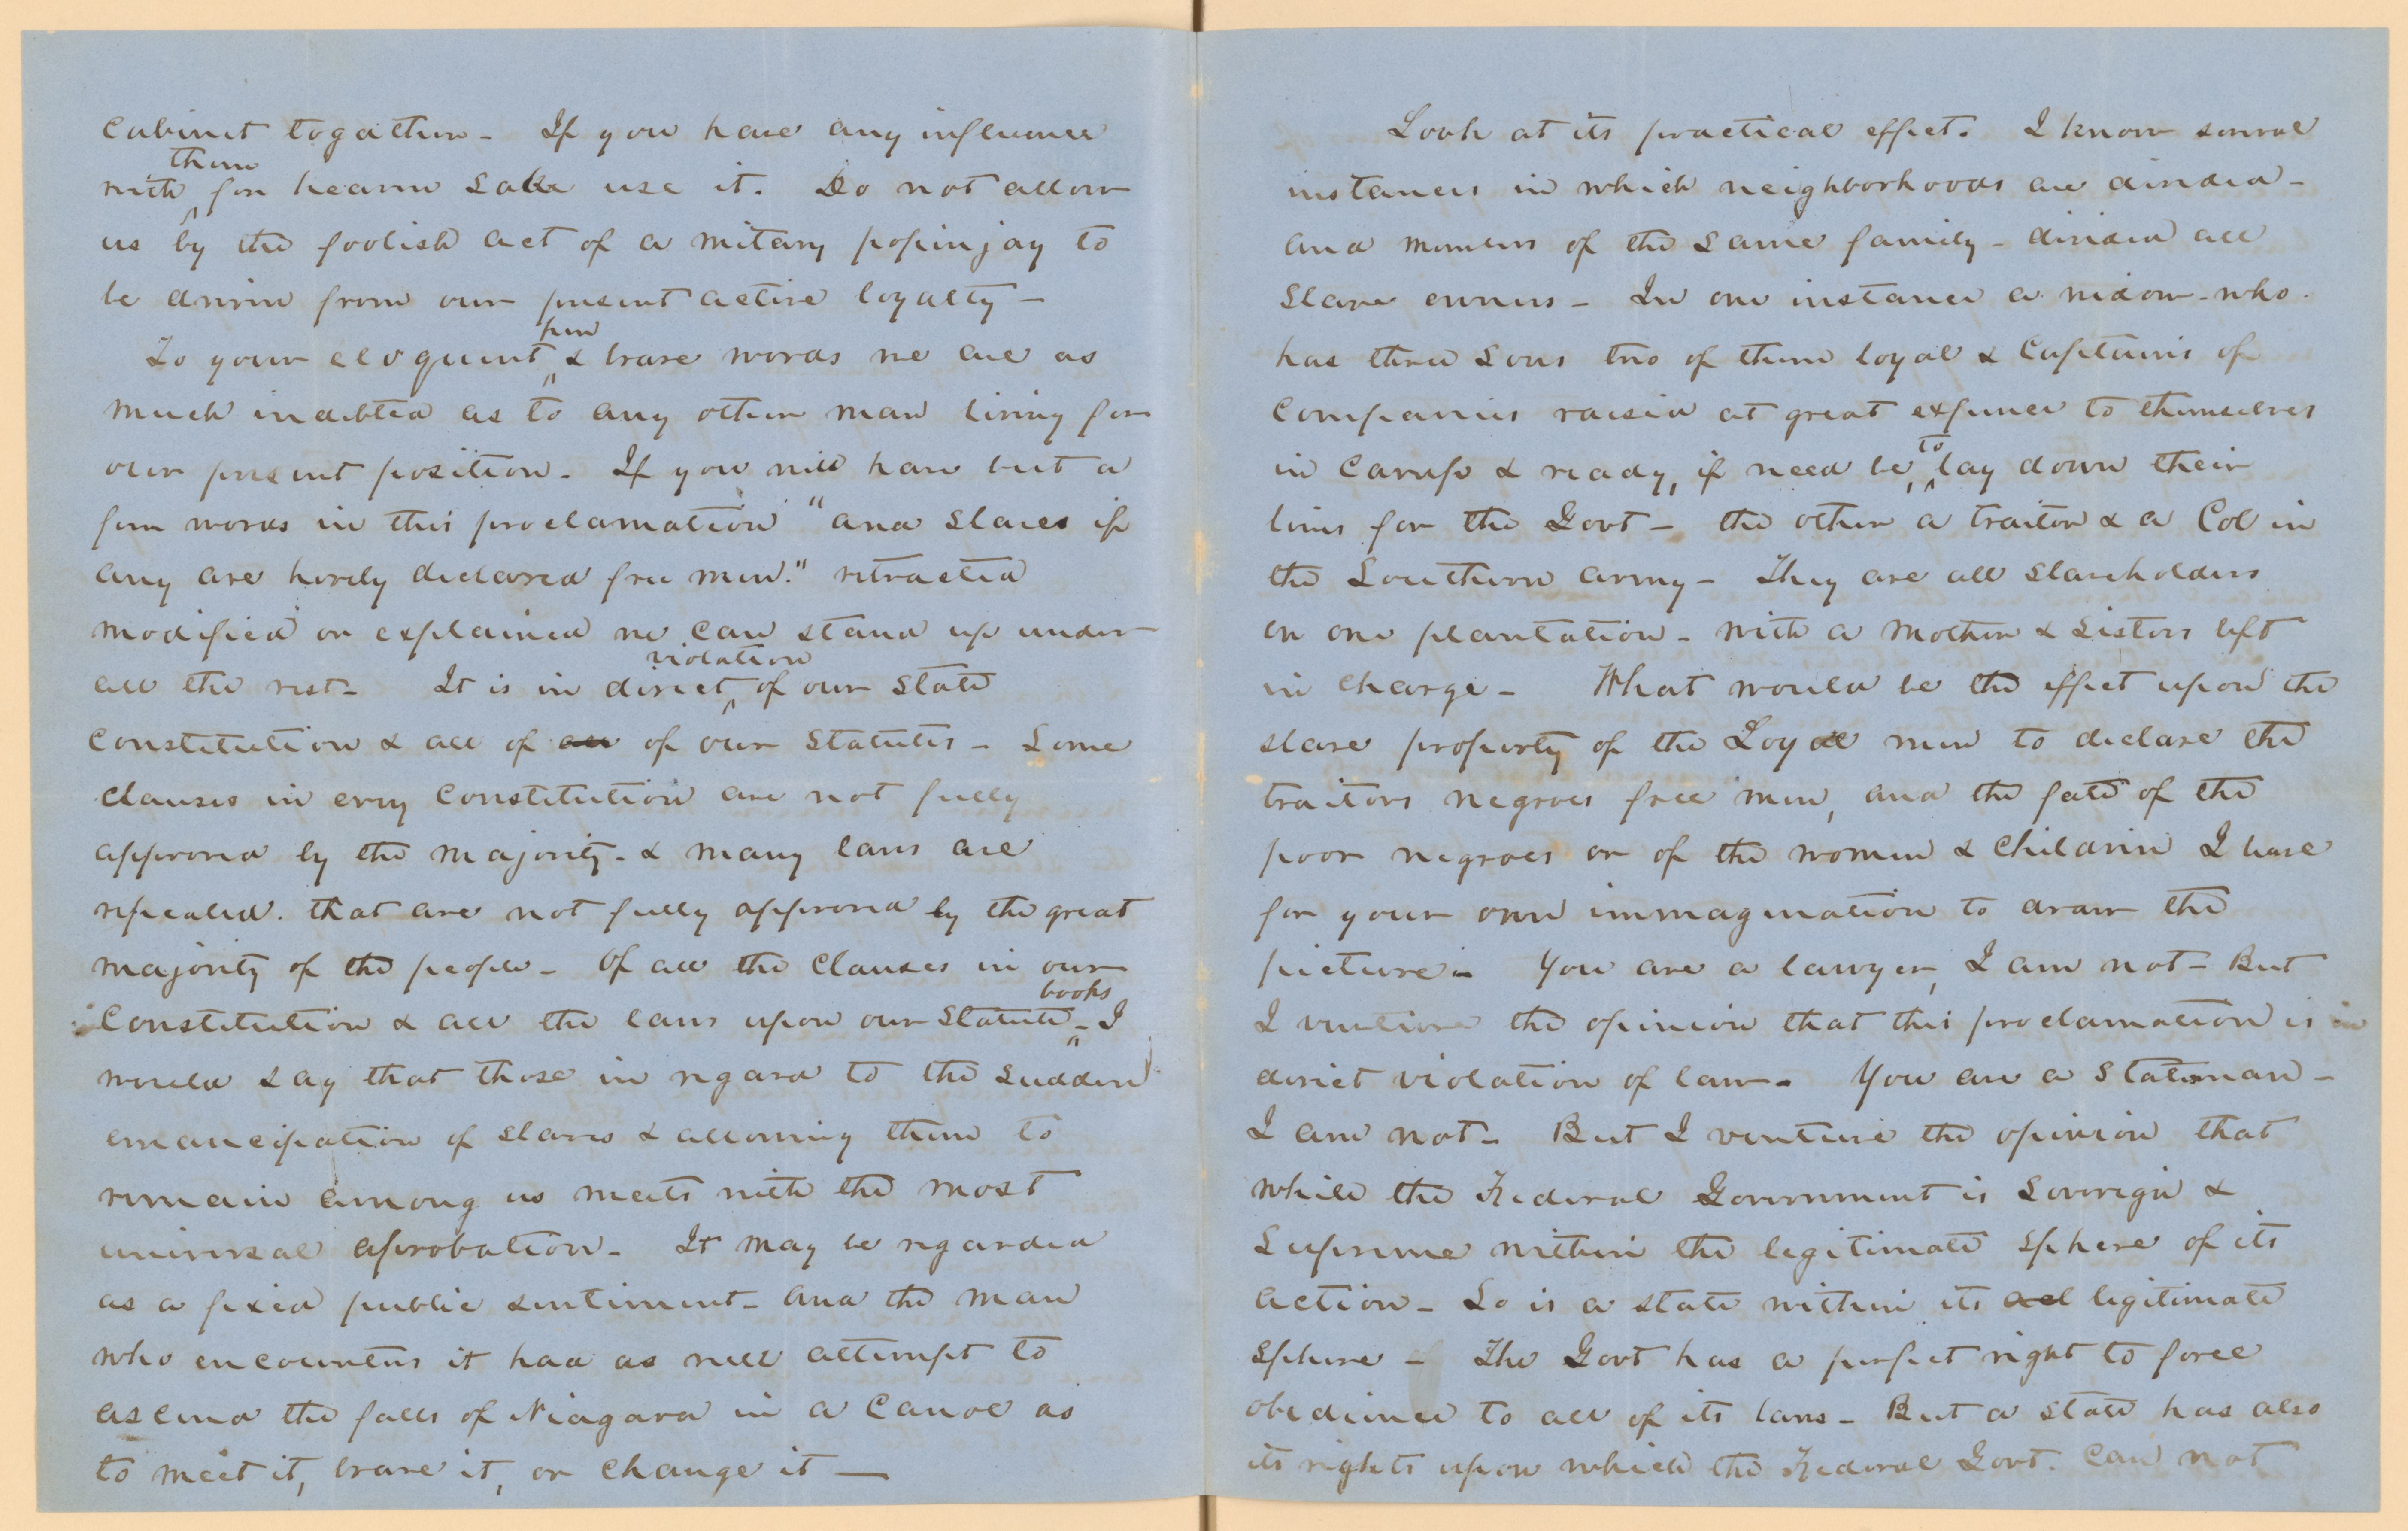 cabinet togather - If you have any influence
with ^them for heavn sake use it. Do not allow
us by the foolish act of a mitary popinjay to
be drivin from our present active loyalty -
To your eloquent ^pen & brave words we are as
much indebted as to any other man living for
our present position. If you will have but a
few words in this proclamation "and slaves if
any are hereby declared free men." retracted
modified or explained we can stand up under
all the rest - It is in direct ^violation of our State
Constitution & all of all of our Statutes - Some
clauses in every Constitution are not fully
approved by the majority - & many laws are
repealed. that are not fully approved by the great
majority of the people - Of all the Clauses in our
Constitution & all the laws upon our Statute ^books - I
would say that those in regard to the sudden
emancipation of slaves & allowing them to
remain among us meets with the most
universal aprobation - It may be regarded
as a fixed public sentiment - and the man
who encounters it had as well attempt to
ascend the falls of Niagara in a Canoe as
to meet it, brave it, or change it —
Look at its practical effect. I know several
instances in which neighborhoods are divided -
and members of the same family - divided all
slave owners - In one instance a widow - who
has three sons two of them loyal & Captains of
Companies raised at great expence to themselves
in camp & ready, if need be, ^to lay down their
lives for the Govt - the other a traitor & a Col in
the Southern army - They are all slaveholders
on one plantation - with a Mother & Sisters left
in charge - What would be the effect upon the
slave property of the Loyal men to declare the
traitors negroes free men, and the fate of the
poor negroes or of the women & children I leave
for your own immagination to draw the
picture - You are a lawyer, I am not - But
I venture the opinion that this proclamation is in
direct violation of law - You are a Statesman -
I am not - But I venture the opinion that
while the Federal Government is Soverign &
Supreme within the legitimate sphere of its
action - So is a state within its legitimate
sphere - The Govt has a perfect right to force
obedience to all of its laws - But a state has also
its rights upon which the Federal Govt. can not